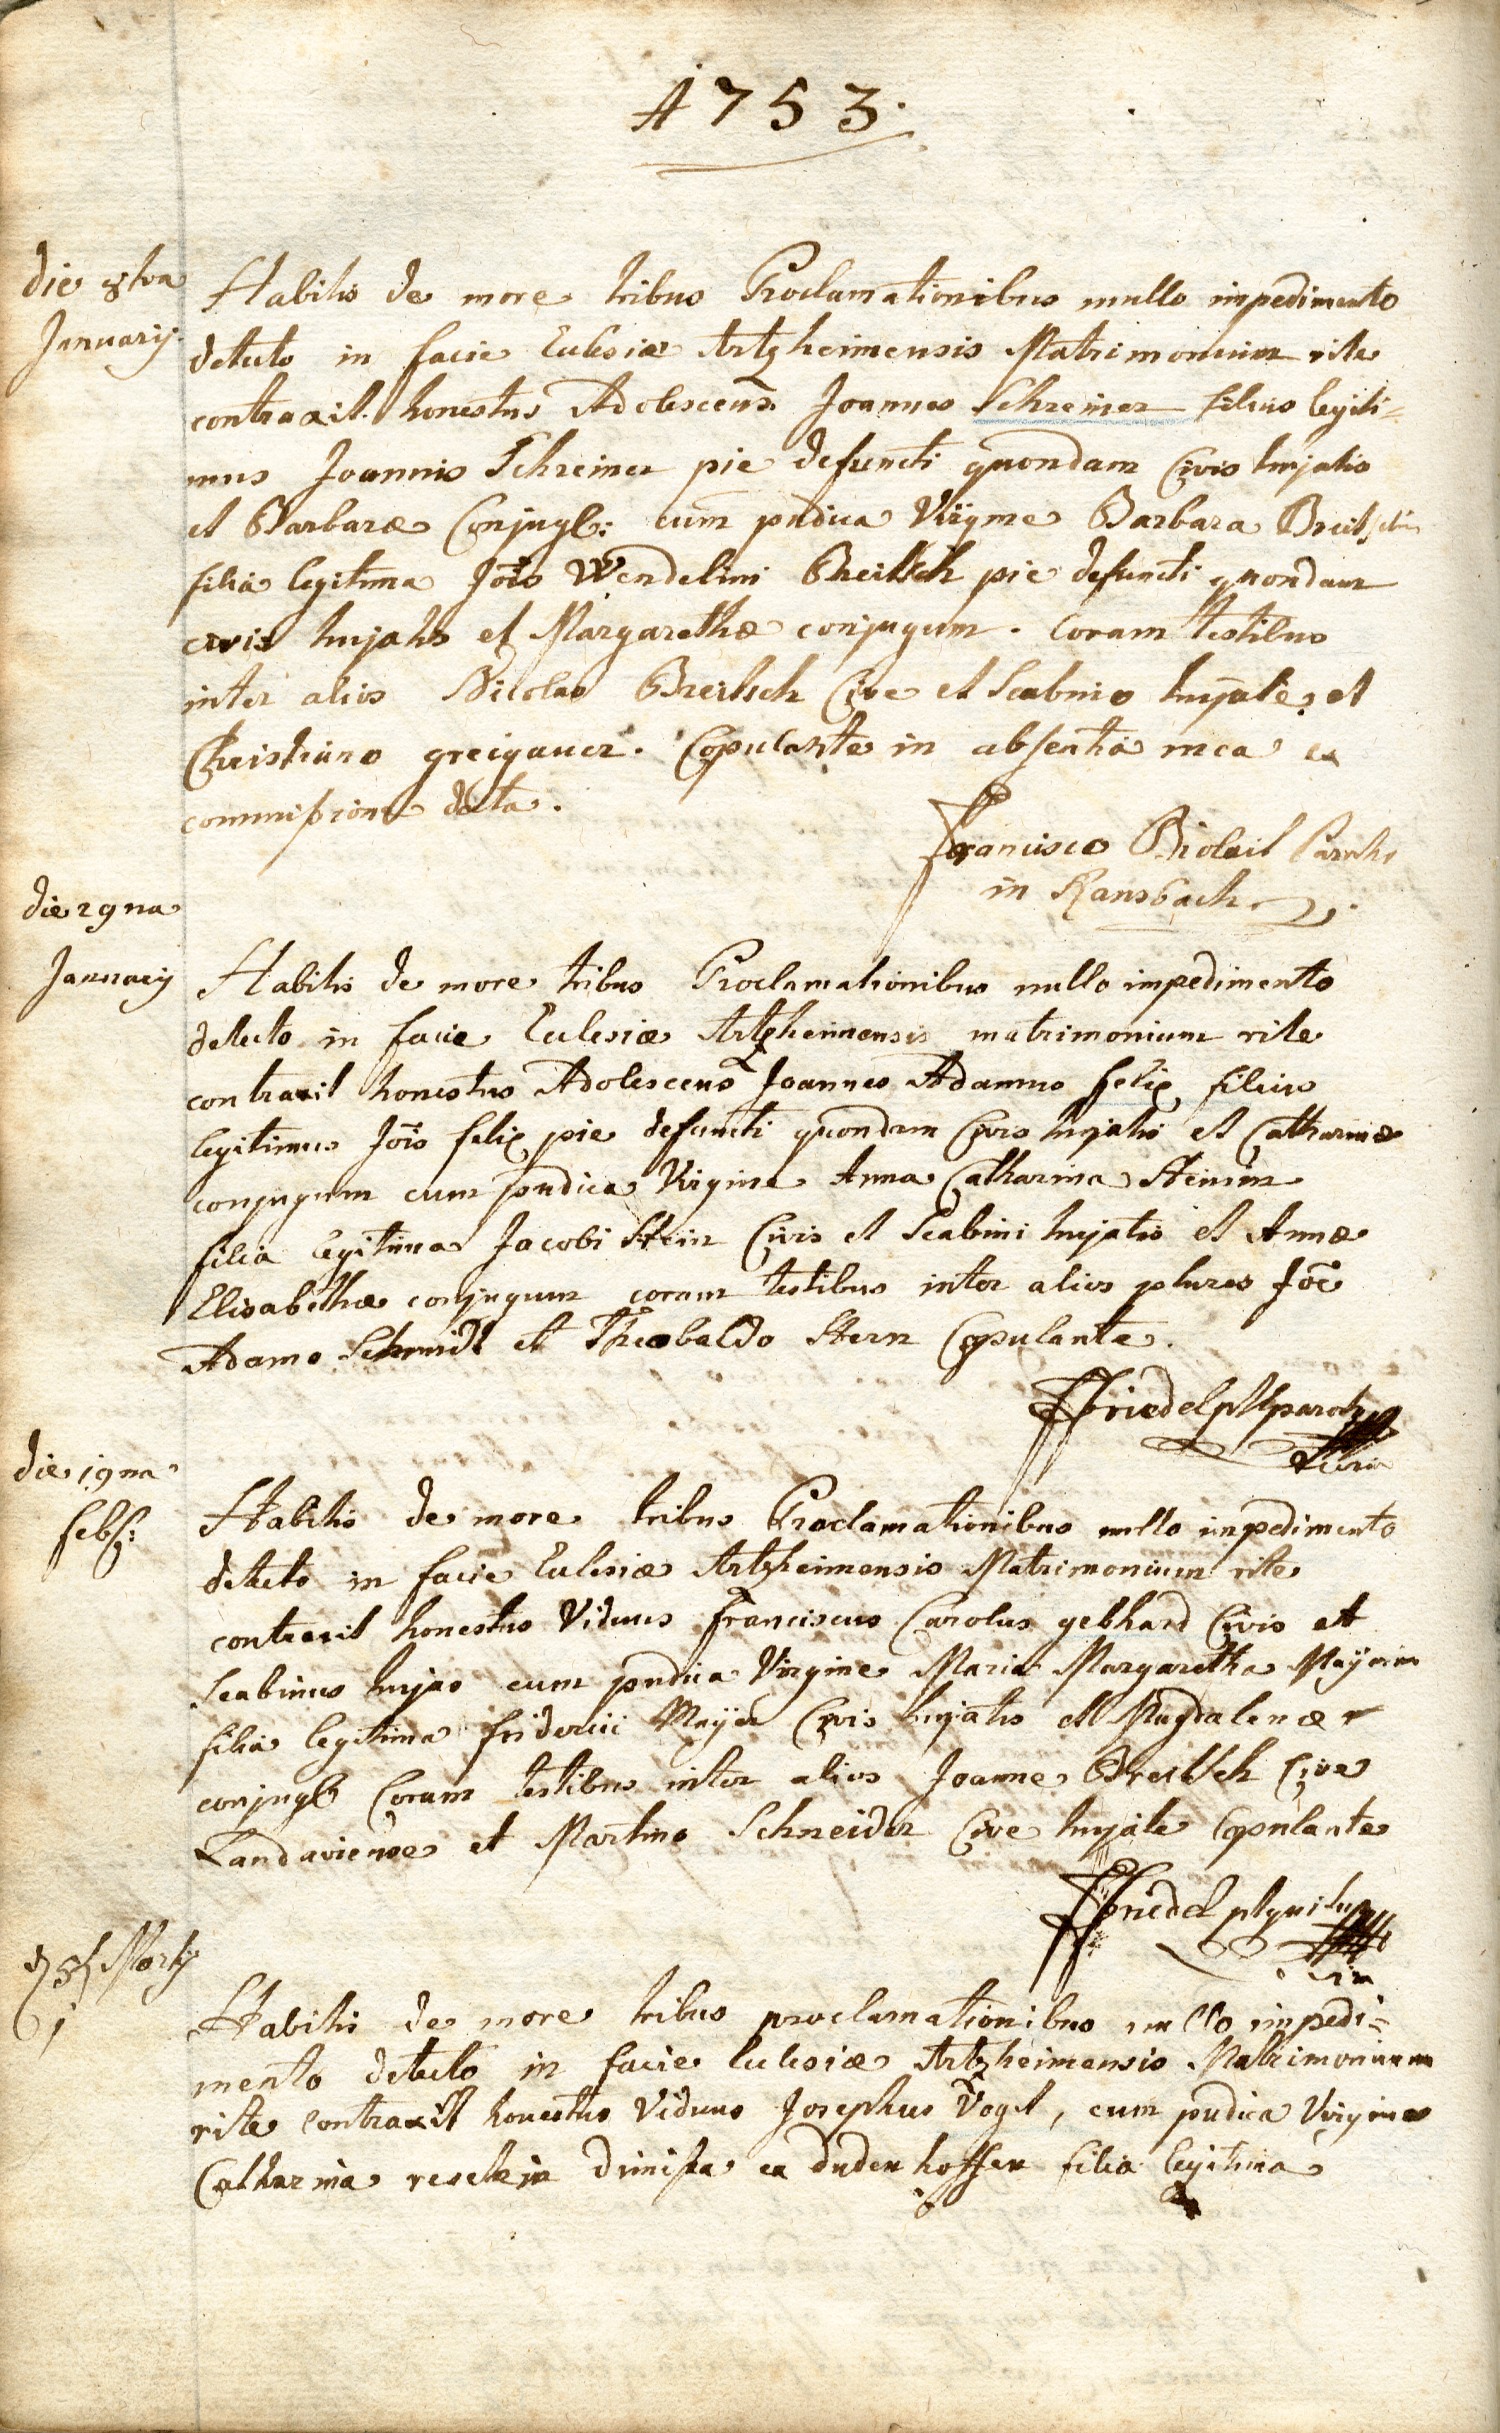 1753.
die 8tva
Januarij.
Habitis de more tribus Proclamationibus nullo impedimento
detecto in facie Eclesiæ Artzheimensis Matrimonium rite
contraxit honestus Adolescens Joannes Schreiner filius legiti=
mus Joannis Schreiner pie defuncti quondam Civis hujatis
et Barbaræ Conjugb: cum pudica Virgine Barbara
filia legitima Jõis Wendelini Breitsch pie defuncti quondam
civis hujatis et Margarethæ conjugum. Coram testibus
inter alios Nicolao Breitsch Cive et Scabino hujate, et
Christiano greigauer. Copulante in absentia mea ex
commissione data.
Francisco Parocho
in Ransbach
die 29na
Januarij
Habitis de more tribus Proclamationibus nullo impedimento
detecto in facie Eclesiæ Artzheimensis matrimonium rite
contraxit honestus Adolescens Joannes Adamus felix filius
legitimus Jõis felix pie defuncti quondam Civis hujatis et Catharinæ
conjugum cum pudica Virgine Anna Catharina Steinin
filia legitima Jacobi Stein Civis et Scabini hujatis et Annæ
Elisabethæ conjugum coram testibus inter alios plures Jõe
Adamo Schmidt et Theobaldo Stern Copulante.
Friedel
die 19na
feb:
Habitis de more tribus Proclamationibus nullo impedimento
detecto in facie Eclesiæ Artzheimensis Matrimonium rite
contraxit honestus Viduus Franciscus Carolus gebhard Civis et
Scabinus hujas cum pudica Virgine Maria Margaretha Mayerin
filia legitima friderici Mayer Civis hujatis et Magdalenæ
conjugb Coram testibus inter alios Joanne Breitsch Cive
Landaviense et Martino Schneider Cive hujate Copulante
Friedel
Martij
Habitis de more tribus proclamationibus nullo impedi=
mento detecto in facie Eclesiæ Artzheimensis Matrimonium
rite Contraxit honestus Viduus Josephus Vogel, cum pudica Virgine
Catharina dimissa ex dudenhoffen filia legitima